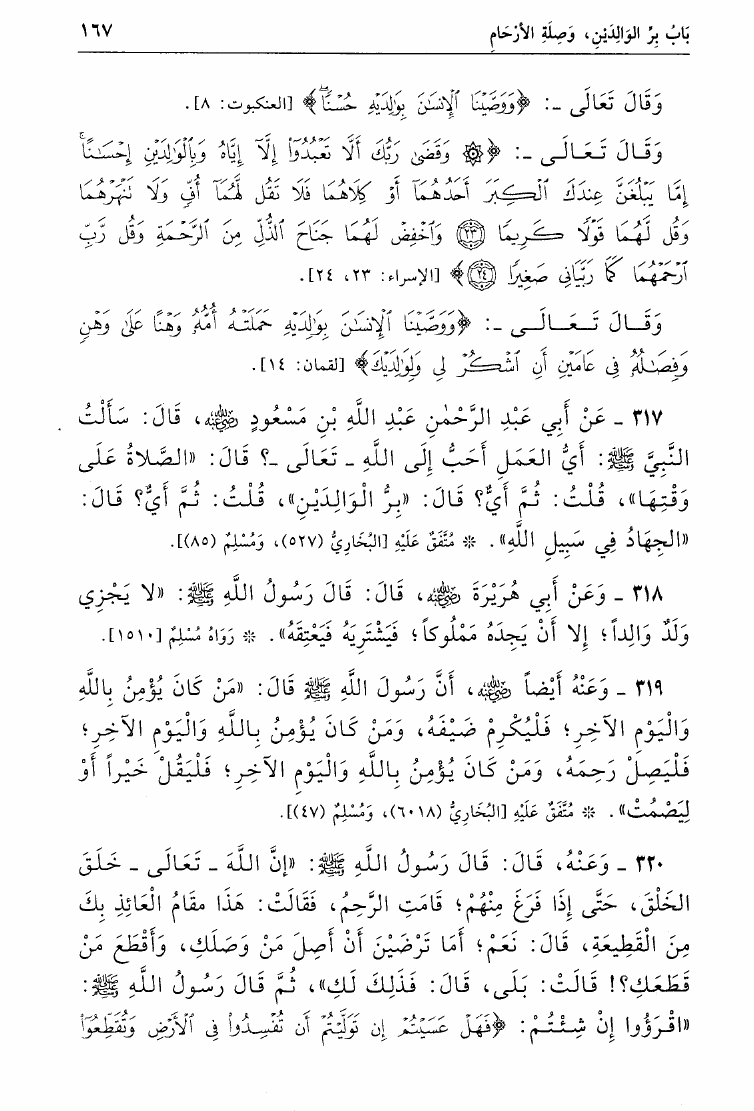 بَابُ بِرِّ الوَالِدَيْنِ، وَصِلَةِ الأَرْحَامِ ١٦٧
وَقَالَ تَعَالَى -: ﴿وَوَصَّيْنَا ٱلْإِنسَٰنَ بِوَٰلِدَيْهِ حُسْنًاۖ﴾ [العنكبوت: ٨].
وَقَالَ تَعَالَى -: ﴿۞ وَقَضَىٰ رَبُّكَ أَلَّا تَعْبُدُوٓا۟ إِلَّآ إِيَّاهُ وَبِٱلْوَٰلِدَيْنِ إِحْسَٰنًاۚ
إِمَّا يَبْلُغَنَّ عِندَكَ ٱلْكِبَرَ أَحَدُهُمَآ أَوْ كِلَاهُمَا فَلَا تَقُل لَّهُمَآ أُفٍّ وَلَا نَنْهَرْهُمَا
وَقُل لَّهُمَا قَوْلًا كَرِيمًا ٢٣ وَٱخْفِضْ لَهُمَا جَنَاحَ ٱلذُّلِّ مِنَ ٱلرَّحْمَةِ وَقُل رَّبِّ
ٱرْحَمْهُمَا كَمَا رَبَّيَانِى صَغِيرًا ٢٤﴾ [الإسراء: ٢٣، ٢٤].
وَقَالَ تَعَالَى -: ﴿وَوَصَّيْنَا ٱلْإِنسَٰنَ بِوَٰلِدَيْهِ حَمَلَتْهُ أُمُّهُۥ وَهْنًا عَلَىٰ وَهْنٍ
وَفِصَٰلُهُۥ فِى عَامَيْنِ أَنِ ٱشْكُرْ لِى وَلِوَٰلِدَيْكَ﴾ [لقمان: ١٤].
٣١٧ - عَنْ أَبِي عَبْدِ الرَّحْمٰنِ عَبْدِ اللَّهِ بْنِ مَسْعُودٍ رضي الله عنه، قَالَ: سَأَلْتُ
النَّبِيَّ ﷺ: أَيُّ العَمَلِ أَحَبُّ إِلَى اللَّهِ - تَعَالَى -؟ قَالَ: «الصَّلاةُ عَلَى
وَقْتِهَا»، قُلْتُ: ثُمَّ أَيٌّ؟ قَالَ: «بِرُّ الْوَالِدَيْنِ»، قُلْتُ: ثُمَّ أَيٌّ؟ قَالَ:
«الجِهَادُ فِي سَبِيلِ اللَّهِ». * مُتَّفَقٌ عَلَيْهِ [البُخَارِيُّ (٥٢٧)، وَمُسْلِمٌ (٨٥)].
٣١٨ - وَعَنْ أَبِي هُرَيْرَةَ رضي الله عنه، قَالَ: قَالَ رَسُولُ اللَّهِ ﷺ: «لا يَجْزِي
وَلَدٌ وَالِداً؛ إِلا أَنْ يَجِدَهُ مَمْلُوكاً؛ فَيَشْتَرِيَهُ فَيَعْتِقَهُ». * رَوَاهُ مُسْلِمٌ [١٥١٠].
٣١٩ - وَعَنْهُ أَيْضاً رضي الله عنه، أَنَّ رَسُولَ اللَّهِ ﷺ قَالَ: «مَنْ كَانَ يُؤْمِنُ بِاللَّهِ
وَالْيَوْمِ الآخِرِ؛ فَلْيُكْرِمْ ضَيْفَهُ، وَمَنْ كَانَ يُؤْمِنُ بِاللَّهِ وَالْيَوْمِ الآخِرِ؛
فَلْيَصِلْ رَحِمَهُ، وَمَنْ كَانَ يُؤْمِنُ بِاللَّهِ وَالْيَوْمِ الآخِرِ؛ فَلْيَقُلْ خَيْراً أَوْ
لِيَصْمُتْ». * مُتَّفَقٌ عَلَيْهِ [البُخَارِيُّ (٦٠١٨)، وَمُسْلِمٌ (٤٧)].
٣٢٠ - وَعَنْهُ، قَالَ: قَالَ رَسُولُ اللَّهِ ﷺ: «إِنَّ اللَّهَ - تَعَالَى - خَلَقَ
الخَلْقَ، حَتَّى إِذَا فَرَغَ مِنْهُمْ؛ قَامَتِ الرَّحِمُ، فَقَالَتْ: هَذَا مقَامُ الْعَائِذِ بِكَ
مِنَ الْقَطِيعَةِ، قَالَ: نَعَمْ؛ أَمَا تَرْضَيْنَ أَنْ أَصِلَ مَنْ وَصَلَكِ، وَأَقْطَعَ مَنْ
قَطَعَكِ؟! قَالَتْ: بَلَى، قَالَ: فَذَلِكَ لَكِ»، ثُمَّ قَالَ رَسُولُ اللَّهِ ﷺ:
«اقْرَؤُوا إِنْ شِئْتُمْ: ﴿فَهَلْ عَسَيْتُمْ إِن تَوَلَّيْتُمْ أَن تُفْسِدُوا۟ فِى ٱلْأَرْضِ وَتُقَطِّعُوٓا۟